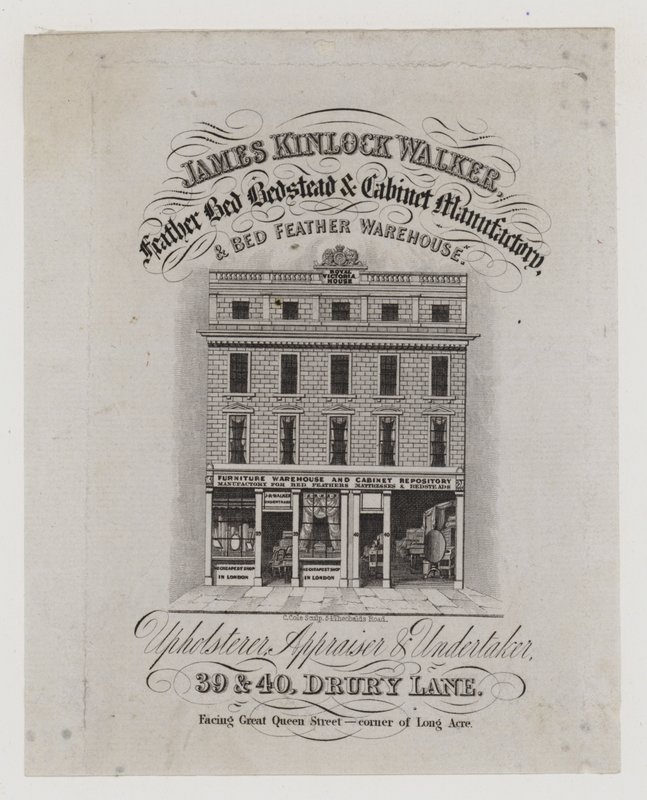 JAMES KINLOCK WALKER,
Feather Bed Bedstead & Cabinet Manufactory,
& BED FEATHER WAREHOUSE.
ROYAL
VICTORIA
HOUSE
FURNITURE WAREHOUSE AND CABINET REPOSITORY
MANUFACTORY FOR BED FEATHERS MATTRESSES & BEDSTEADS
J.K.WALKER
39
39
40
40
CHEAPEST SHOP
IN LONDON
CHEAPEST SHOP
IN LONDON
C. Cole Sculp. Theobalds Road.
Upholsterer, Appraiser & Undertaker,
39 & 40, DRURY LANE.
Facing Great Queen Street — corner of Long Acre.